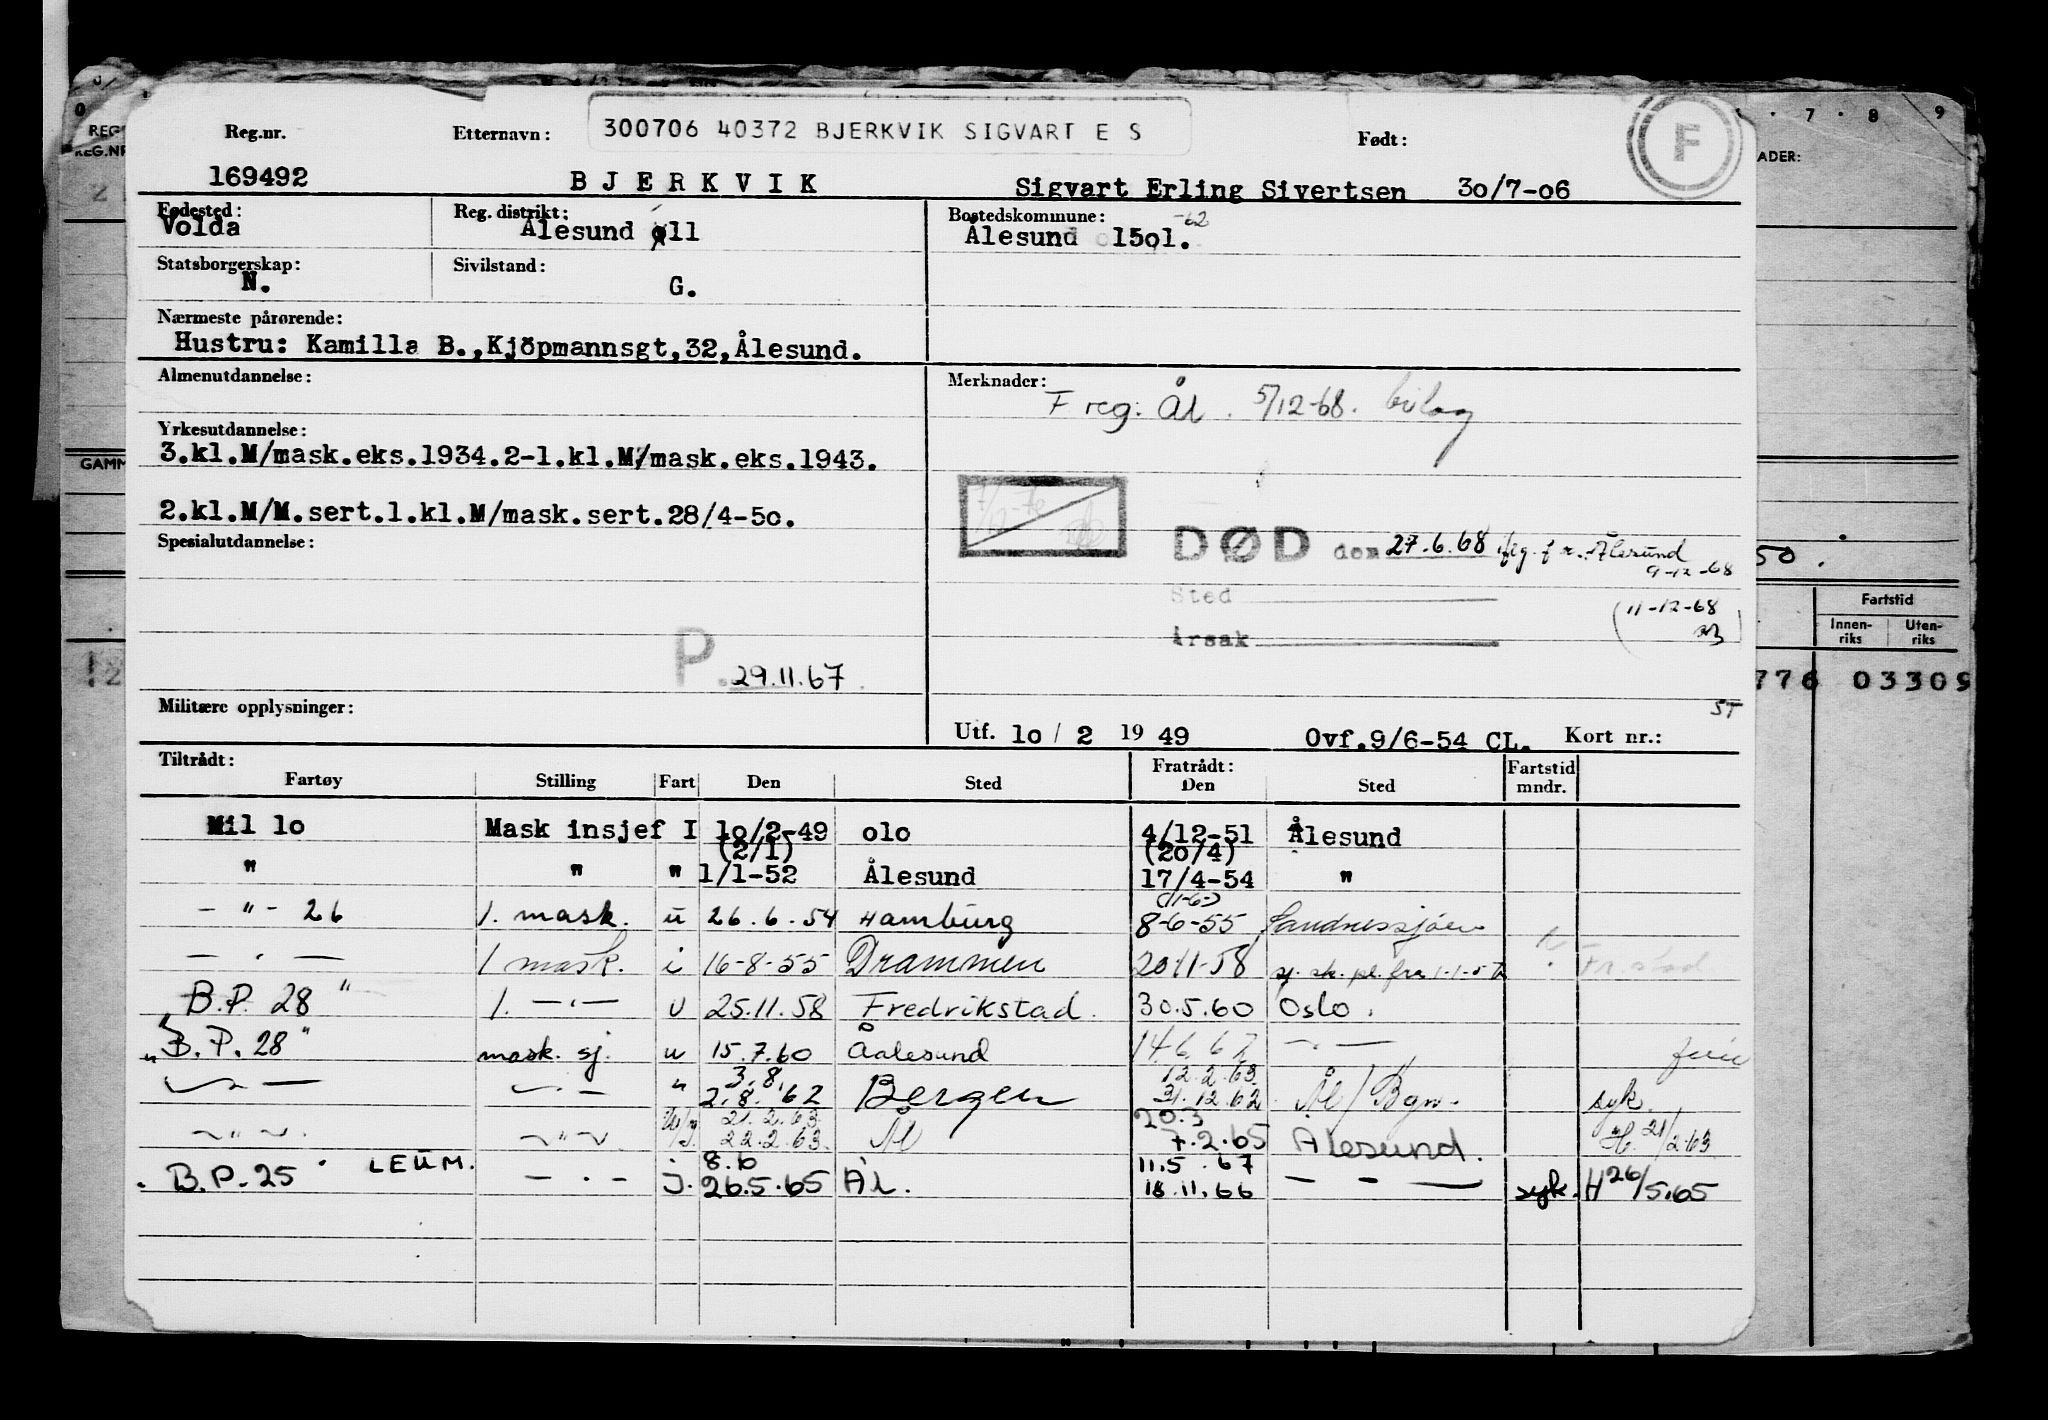 Reg.nr. Etternavn: 300706 40372 BJERKVIK SIGVART E S Født: F
169492 BJERKVIK Sigvart Erling Sivertsen 3o/7-o6
Fødested: Reg. distrikt: Bostedskommune: -62
Volda Ålesund o11 Ålesund 15o1.
Statsborgerskap: Sivilstand:
N. G.
Nærmeste pårørende:
Hustru: Kamilla B.,Kjöpmannsgt,32,Ålesund.
Almenutdannelse: Merknader:
F reg. Ål. 5/12-68. bilag
Yrkesutdannelse:
3.kl.M/mask.eks.1934.2-1.kl.M/mask.eks.1943.
2.kl.M/M.sert.1.kl.M/mask.sert.28/4-5o.
DØD den 27.6.68 iflg. f.r. Ålesund
9-12-68
Spesialutdannelse:
Sted
11-12-68
Årsak
P. 29.11.67.
Militære opplysninger: ST
Utf. 1o / 2 19 49 Ovf.9/6-54 CL. Kort nr.:
Tiltrådt: Fratrådt: Fartstid
Fartøy Stilling Fart Den Sted Den Sted mndr.
Mil 1o Mask insjef I 1o/2-49 o1o 4/12-51 Ålesund
(2/1) (20/4)
" " " 1/1-52 Ålesund 17/4-54 "
(11-6-)
- " - 26 1. mask. u 26.6.54 Hamburg 8-6-55 Sandnessjøen
— " — 1 mask. i 16-8-55 Drammen 20/1-58
B.P. 28" 1. —"— u 25.11.58 Fredrikstad. 30.5.60 Oslo.
"B.P. 28" mask. sj. u 15.7.60 Aalesund 14.6.62 —"— ferie
3.8. 12.2.63
—"— —"— " 2.8.62 Bergen 31.12.62 Ål/Bgn. syk.
21.2.63 20.3
—"— —"— 22.2.63. Ål 7.2.65 Ålesund. H 21/2-63
8.6 11.5.67
"B.P. 25" LEUM. —"— J. 26.5.65 ÅL. 18.11.66 — " — syk. H 26/5.65
7 8 9
ADER:
GAMM
50.
Fartstid
Innenriks Utenriks
776 03309